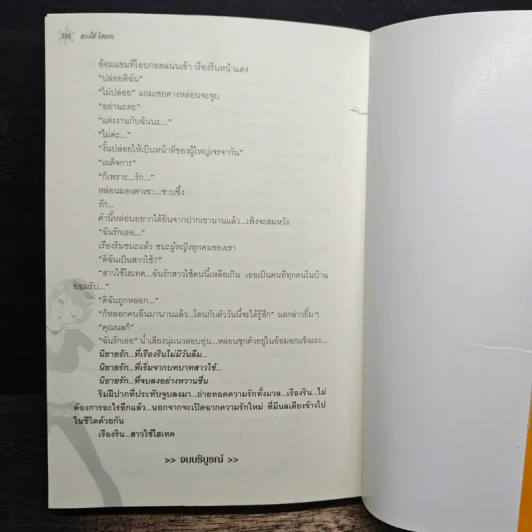 350 สาวใช้ ไฮเทค
อ้อมแขนที่โอบกอดแน่นเข้า เรืองรินหน้าแดง
“ปล่อยดิฉัน”
“ไม่ปล่อย” แถมเชยคางหล่อนจะจูบ
“อย่านะคะ”
“แต่งงานกับฉันนะ...”
“ไม่ค่ะ...”
“งั้นปล่อยให้เป็นหน้าที่ของผู้ใหญ่เจรจากัน”
“เผด็จการ”
“ก็เพราะ...รัก...”
หล่อนมองตาเขา...ซาบซึ้ง
รัก...
คำนี้หล่อนอยากได้ยินจากปากเขานานแล้ว...เพิ่งจะสมหวัง
“ฉันรักเธอ...”
เรืองรินชนะแล้ว ชนะผู้หญิงทุกคนของเขา
“ดิฉันเป็นสาวใช้?”
“สาวใช้ไฮเทค...ฉันรักสาวใช้คนนี้เหลือเกิน เธอเป็นคนที่ทุกคนในบ้าน
ยอมรับ...”
“ดิฉันถูกหลอก...”
“ก็หลอกคนอื่นมานานแล้ว...โดนกับตัววันนี้จะได้รู้สึก” นลกล่าวยิ้มๆ
“คุณนลก็”
“ฉันรักเธอ” น้ำเสียงนุ่มนวลอบอุ่น...หล่อนซุกตัวอยู่ในอ้อมอกแข็งแรง...
นิยายรัก...ที่เรืองรินไม่มีวันลืม...
นิยายรัก...ที่เริ่มจากบทบาทสาวใช้...
นิยายรัก...ที่จบลงอย่างหวานชื่น
ริมฝีปากที่ประทับจูบลงมา...ถ่ายทอดความรักทั้งมวล...เรืองริน...ไม่
ต้องการอะไรอีกแล้ว...นอกจากจะเปิดฉากความรักใหม่ ที่มีนลเคียงข้างไป
ในชีวิตด้วยกัน
เรืองริน...สาวใช้ไฮเทค
>> จบบริบูรณ์ >>